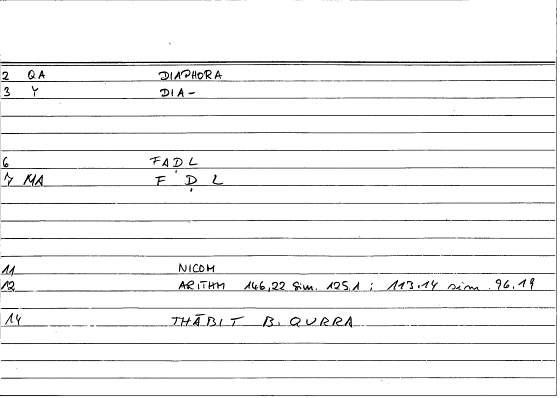 2 QA DIAPHORA
3 Y DIA-
6 FAḌL
7 MA F Ḍ L
11 NICOM
12 ARITHM 146,22 sim. 125.1 ; 113.14 sim. 96.19
14 THĀBIT B. QURRA